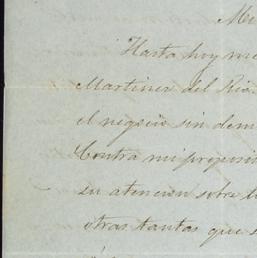 Hasta hoy me
Martinez del Rio
el negocio sin dem
Contra mi propósi
su atencion sobre l
otras tantas que s